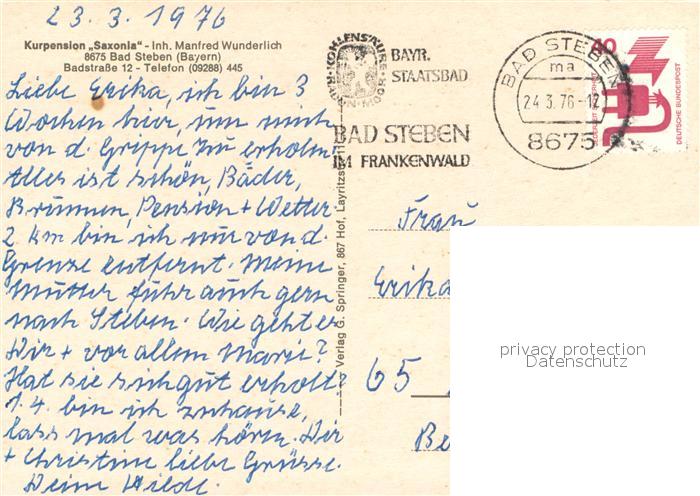 23.3.1976
Kurpension „Saxonia" - Inh. Manfred Wunderlich
8675 Bad Steben (Bayern)
Badstraße 12 - Telefon (09288) 445
Liebe Erika, ich bin 3
Wochen hier, um mich
von d. Grippe zu erholen.
Alles ist schön, Bäder,
Brunnen, Pension + Wetter.
2 km bin ich nur von d.
Grenze entfernt. Meine
Mutter fuhr auch gern
nach Steben. Wie geht es
Dir + vor allem Marie?
Hat sie sich gut erholt?
1.4. bin ich zuhause,
lass mal was hören. Dir
+ Christine liebe Grüsse.
Deine
Verlag G. Springer, 867 Hof, Layritzstr.
KOHLENSÄURE
RADON-MOOR
BAYR.
STAATSBAD
BAD STEBEN
IM FRANKENWALD
BAD STEBEN
ma
24.3.76-12
8675
40
DEUTSCHE BUNDESPOST
Frau
Erika
65
Be
privacy protection
Datenschutz